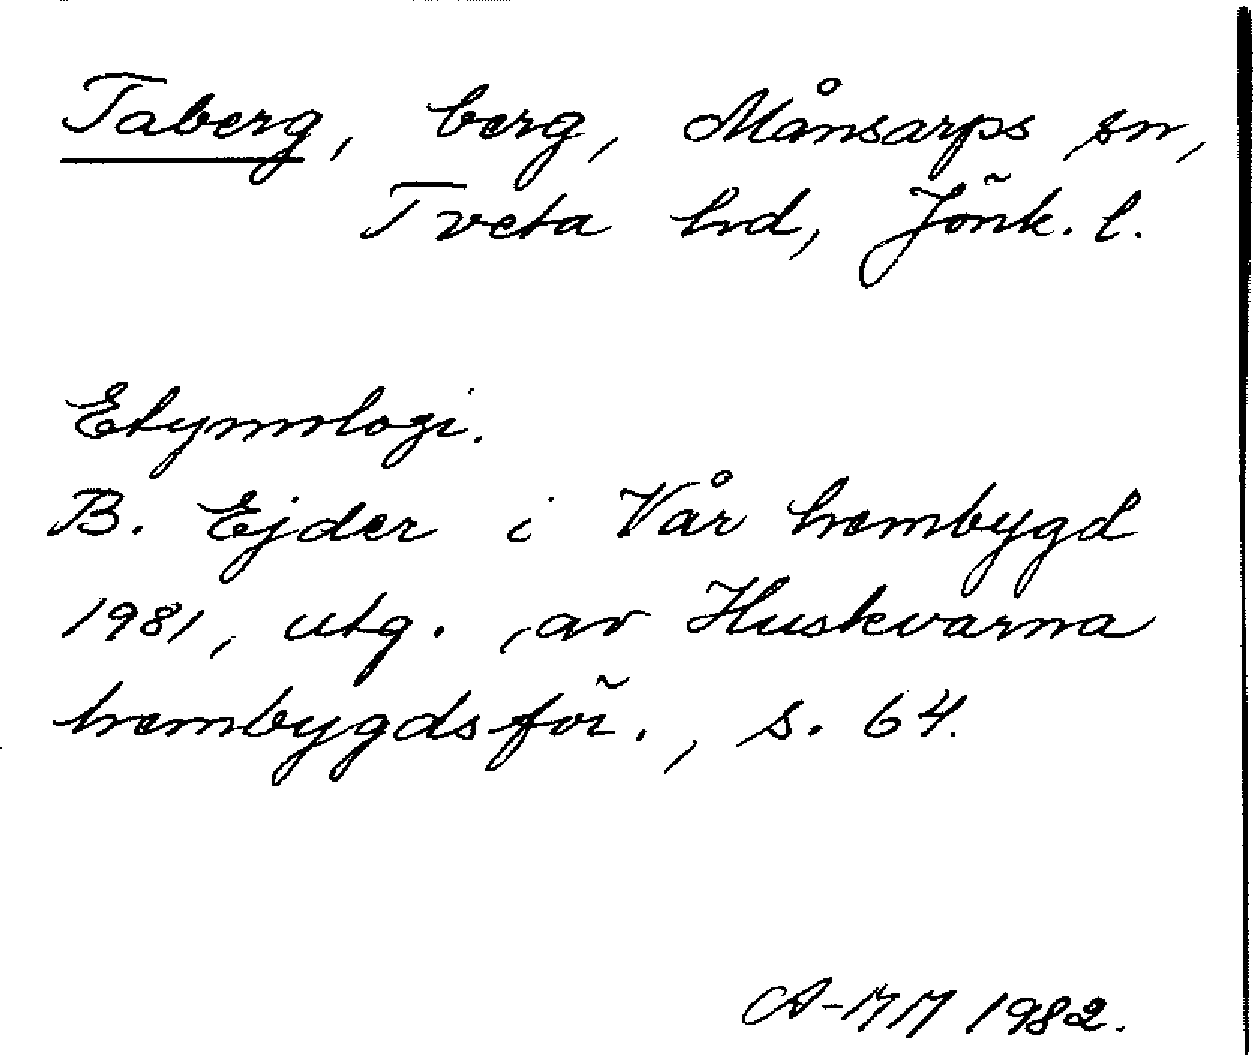 Taberg, berg, Månsarps sn,
Tveta hd, Jönk. l.
Etymologi.
B. Ejder i Vår hembygd
1981, utg. av Huskvarna
hembygdsför., s. 64.
A-MM 1982.